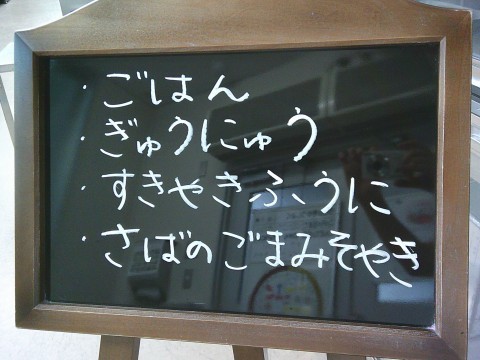 ・ごはん
・ぎゅうにゅう
・すきやきふうに
・さばのごまみそやき